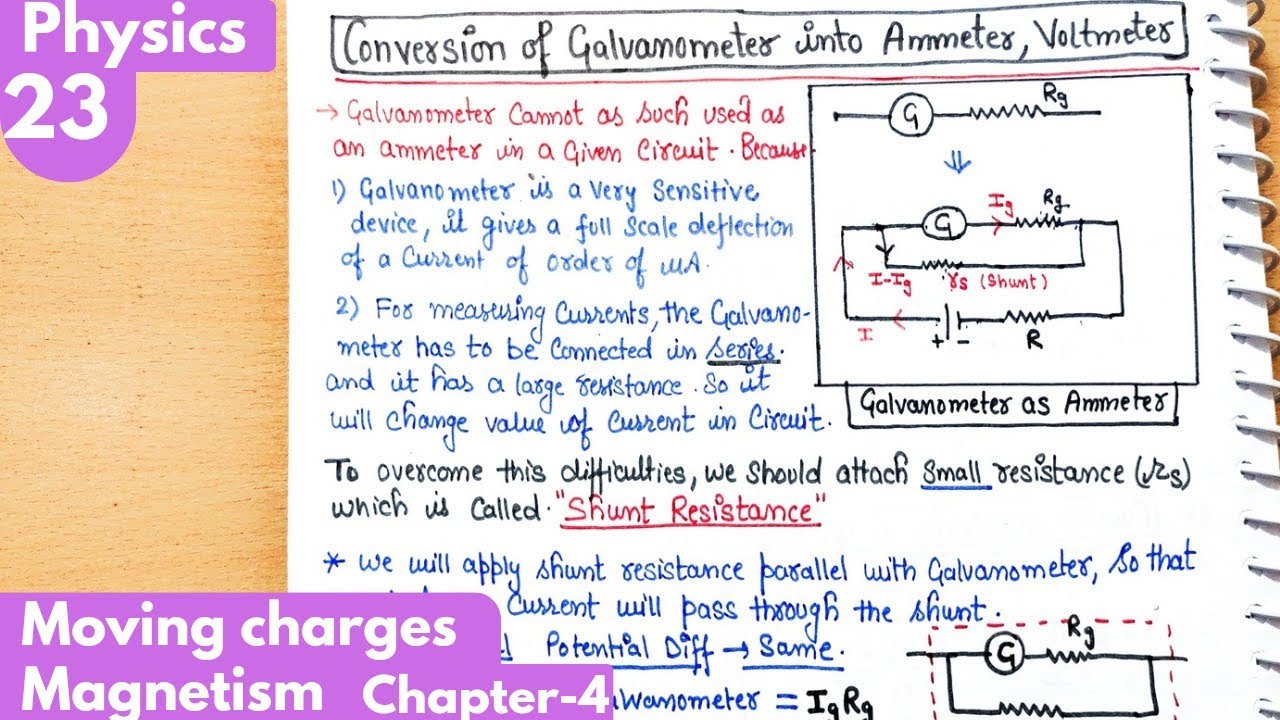 Physics
23
Conversion of Galvanometer into Ammeter, Voltmeter
→ Galvanometer Cannot as such used as
an ammeter in a Given Circuit. Because
1) Galvanometer is a very Sensitive
device, it gives a full scale deflection
of a Current of order of μA.
2) For measuring Currents, the Galvano-
meter has to be Connected in series.
and it has a large resistance. So it
will change value of Current in Circuit.
G Rg
Ig Rg
G
I-Ig rs (Shunt)
I + - R
Galvanometer as Ammeter
To overcome this difficulties, we should attach small resistance (rs)
which is Called. "Shunt Resistance"
* We will apply shunt resistance parallel with Galvanometer, So that
Current will pass through the shunt.
Potential Diff → Same.
= IgRg
G Rg
Moving charges
Magnetism Chapter-4